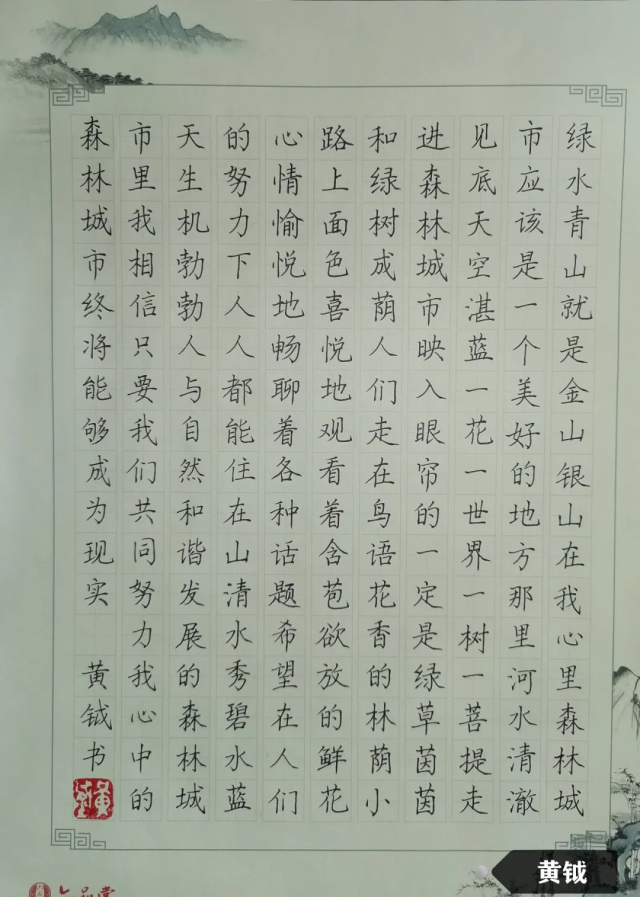 绿水青山就是金山银山在我心里森林城
市应该是一个美好的地方那里河水清澈
见底天空湛蓝一花一世界一树一菩提走
进森林城市映入眼帘的一定是绿草茵茵
和绿树成荫人们走在鸟语花香的林荫小
路上面色喜悦地观看着含苞欲放的鲜花
心情愉悦地畅聊着各种话题希望在人们
的努力下人人都能住在山清水秀碧水蓝
天生机勃勃人与自然和谐发展的森林城
市里我相信只要我们共同努力我心中的
森林城市终将能够成为现实 黄钺书
黄钺